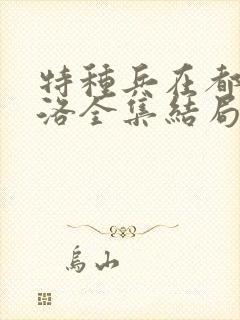 特種兵在都
洛全集結局
烏山